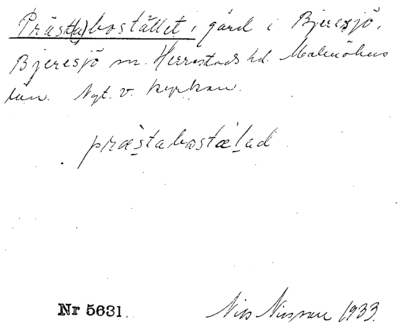 Präst(a)bostället, gård i Bjeresjö,
Bjeresjö sn. Herrestads hd. Malmöhus
län. Nyt. v. kyrkan.
præstabostælad
Nr 5631. Nils Nilsson 1933.